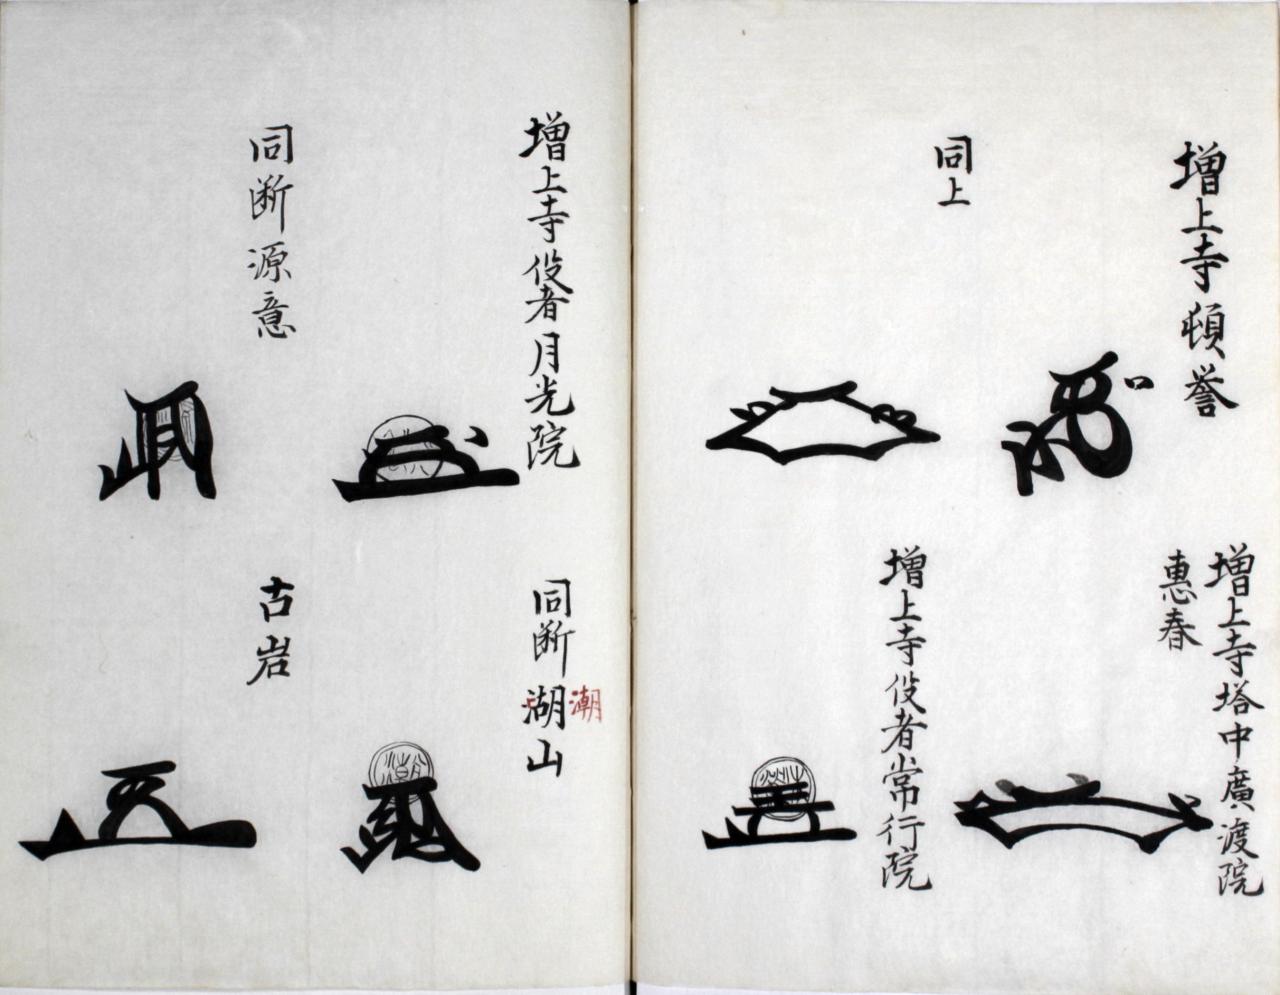 増上寺頓誉
同上
増上寺塔中廣渡院
惠春
増上寺役者常行院
増上寺役者月光院
同断源意
同断湖山
潮
古岩